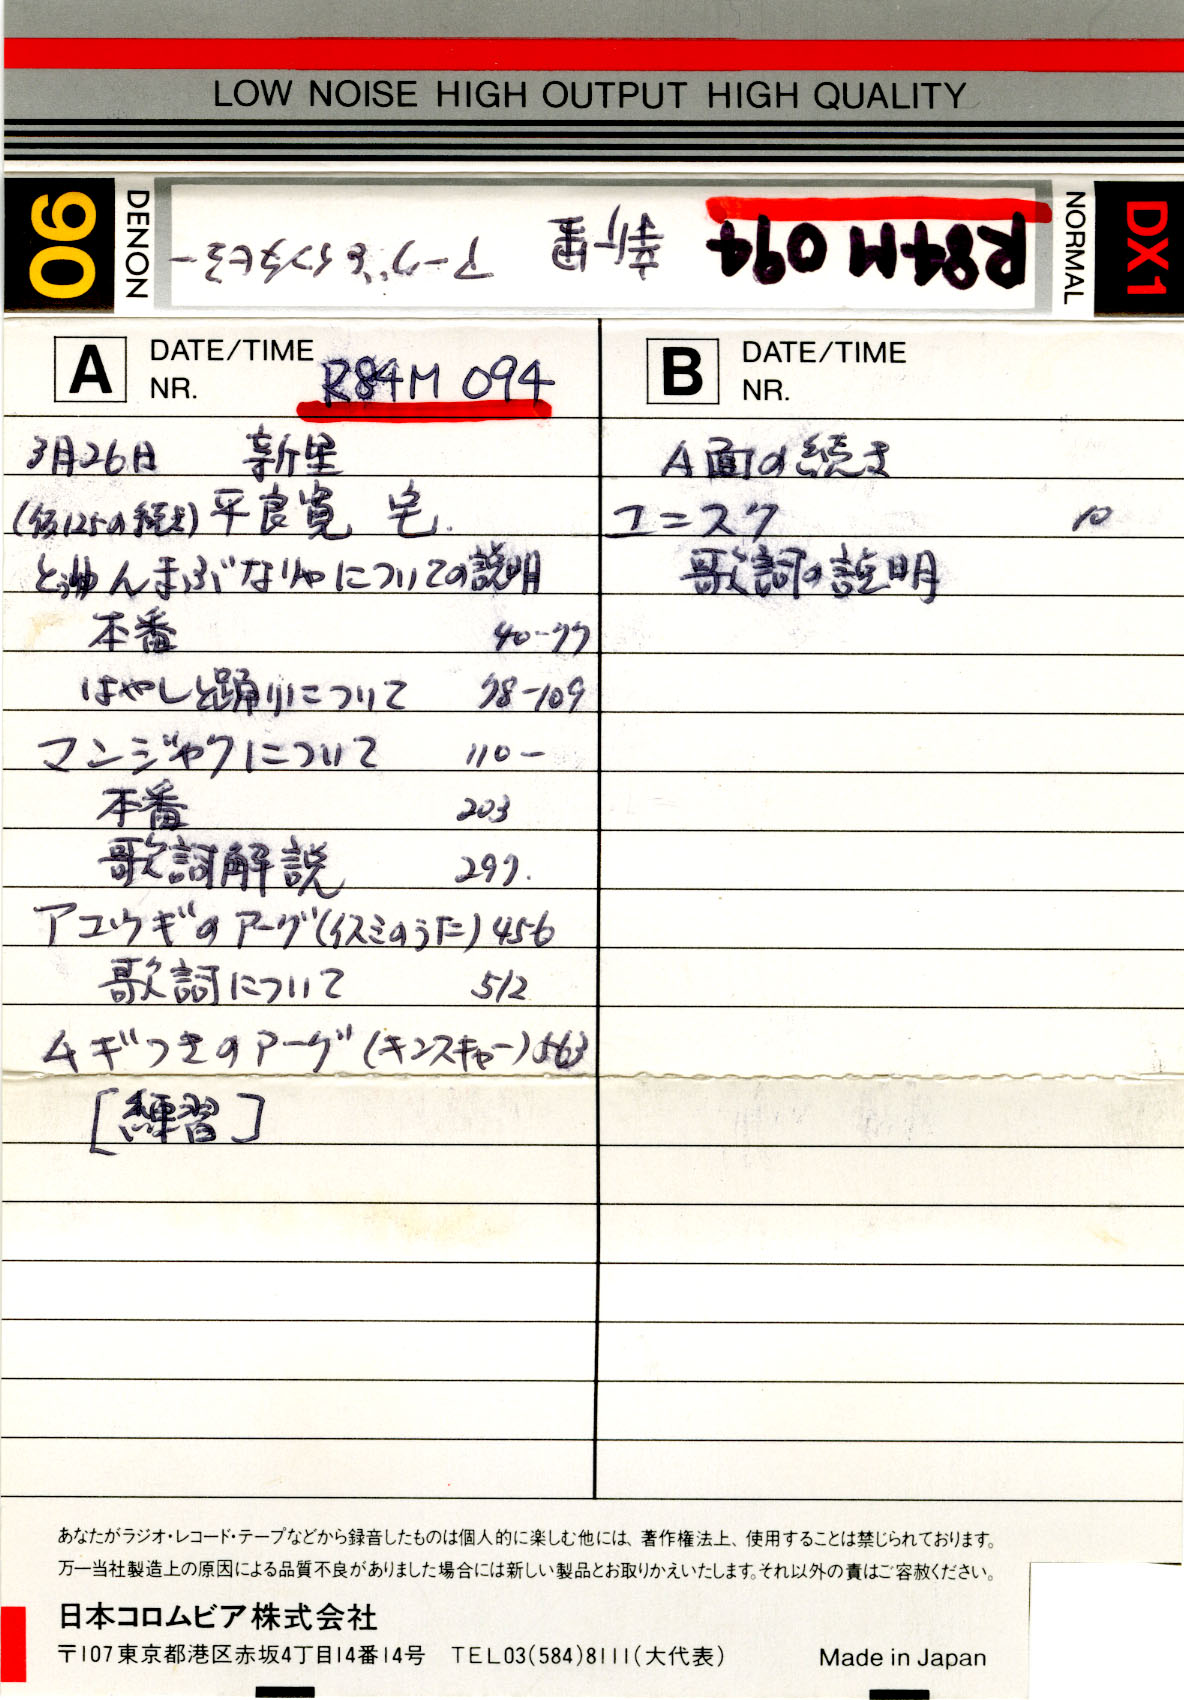 LOW NOISE HIGH OUTPUT HIGH QUALITY
90 DENON R84M 094 新里 NORMAL DX1
A DATE/TIME
NR. R84M 094
3月26日 新里
(仮125の続き) 平良寛 宅.
んまぶなりゃについての説明
本番 40-77
はやしと踊りについて 78-109
マンジャクについて 110-
本番 203
歌詞解説 297.
アユウギのアーグ(イスミのうた) 456
歌詞について 512
ムギつきのアーグ(キンスキャー) 563
[練習]
B DATE/TIME
NR.
A面の続き
ユニスク 10
歌詞の説明
あなたがラジオ・レコード・テープなどから録音したものは個人的に楽しむ他には、著作権法上、使用することは禁じられております。
万一当社製造上の原因による品質不良がありました場合には新しい製品とお取りかえいたします。それ以外の責はご容赦ください。
日本コロムビア株式会社
〒107東京都港区赤坂4丁目14番14号 TEL03(584)8111(大代表) Made in Japan